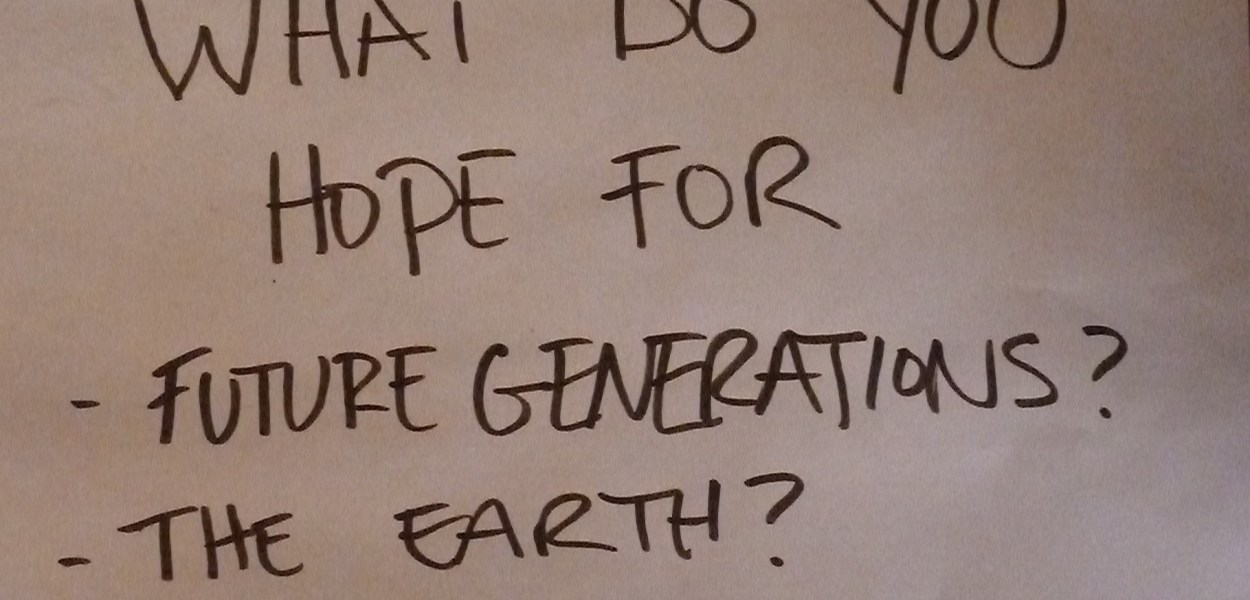 WHAT DO YOU
HOPE FOR
- FUTURE GENERATIONS?
- THE EARTH?